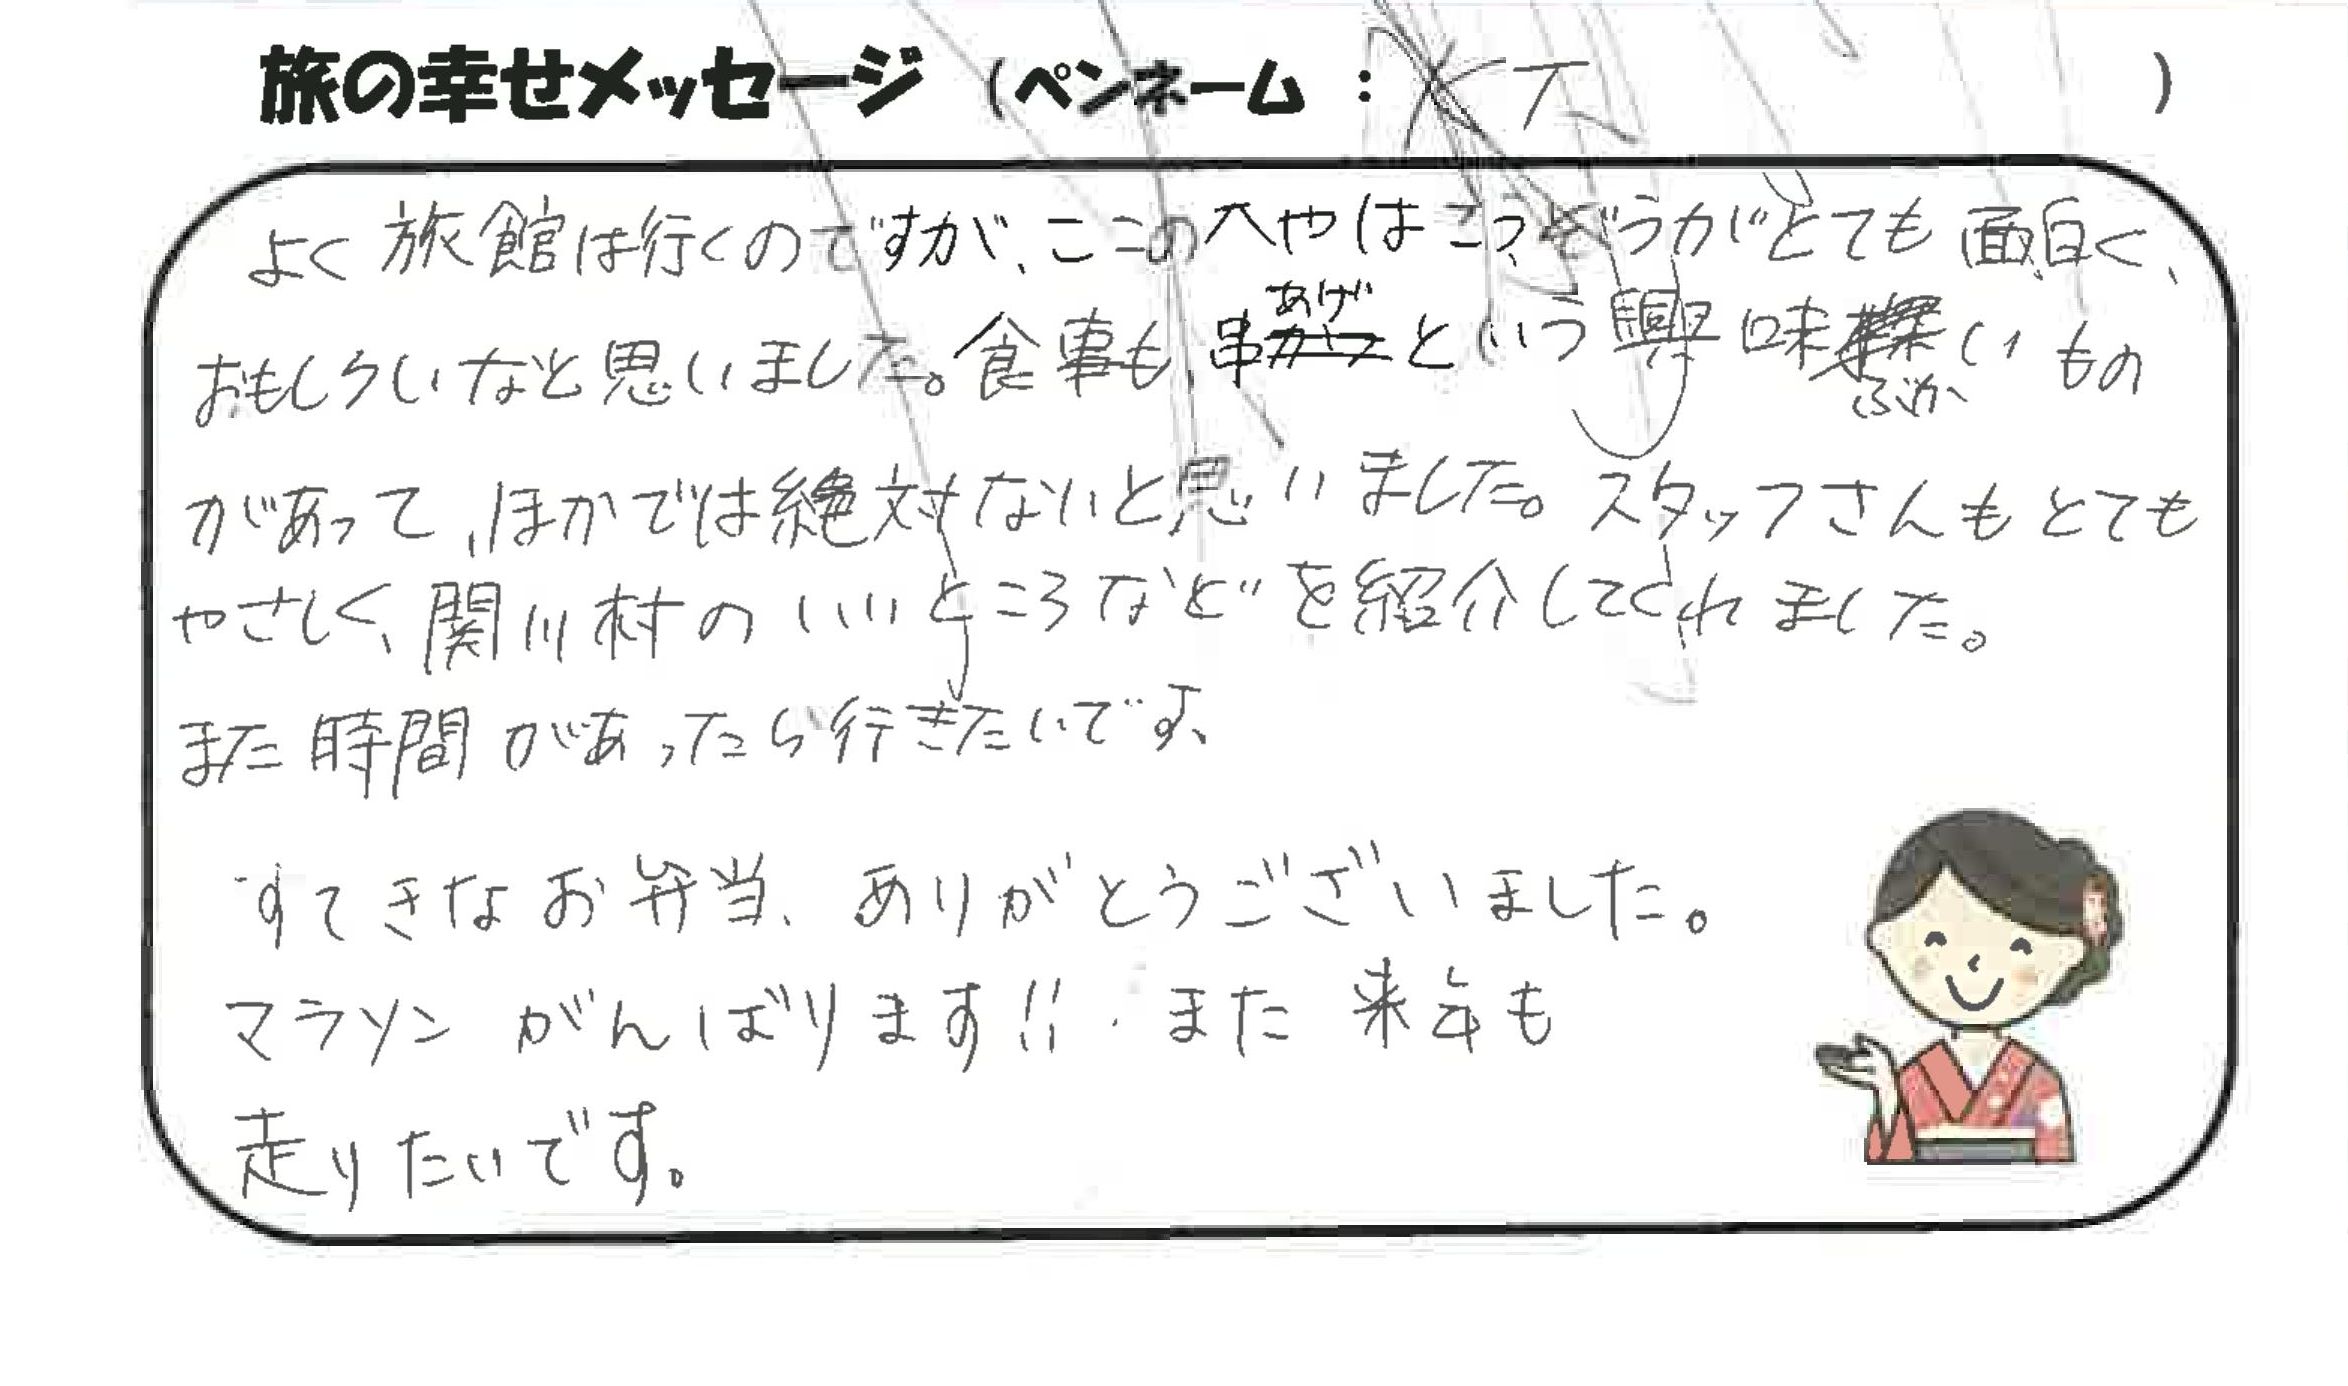 旅の幸せメッセージ (ペンネーム : KT )
よく旅館は行くのですが、ここのへやはこうぞうがとても面白く、
おもしろいなと思いました。食事も、串あげという興味ぶかいもの
があって、ほかでは絶対ないと思いました。スタッフさんもとても
やさしく、関川村のいいところなどを紹介してくれました。
また時間があったら行きたいです、
すてきなお弁当、ありがとうございました。
マラソンがんばります!!また来年も
走りたいです。